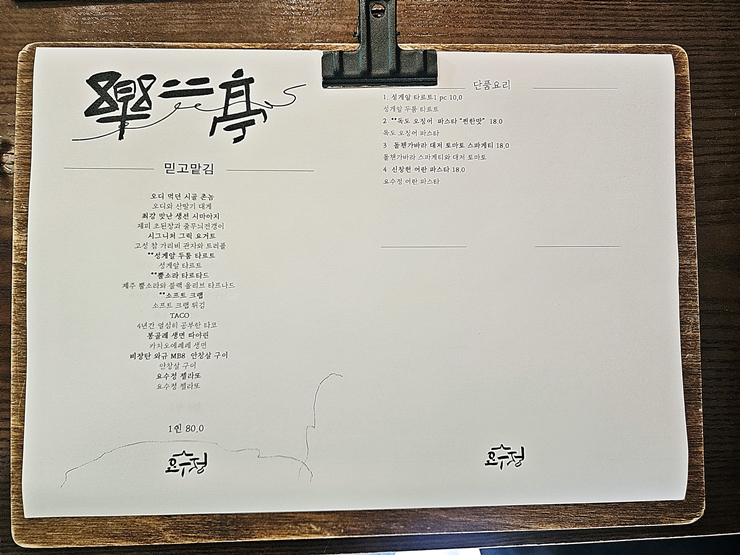 樂二亭
믿고맡김
오디 먹던 시골 촌놈
오디와 산딸기 대게
최강 맛난 생선 시마아지
제피 초된장과 줄무늬전갱이
시그니처 그릭 요거트
고성 참 가리비 관자와 트러플
**성게알 두툼 타르트
성게알 타르트
**뿔소라 타르타드
제주 뿔소라와 블랙 올리브 타프나드
**소프트 크랩
소프트 크랩 튀김
TACO
4년간 열심히 공부한 타코
봉골레 생면 타야린
카치오에페페 생면
비장탄 와규 MB8 안창살 구이
안창살 구이
요수정 젤라또
요수정 젤라또
1인 80.0
요수정
단품요리
1. 성게알 타르트1 pc 10.0
성게알 두툼 타르트
2 **독도 오징어 파스타 "찐한맛" 18.0
독도 오징어 파스타
3 돌쩐가바라 대저 토마토 스파게티 18.0
돌쩐가바라 스파게티와 대저 토마토
4 신창현 어란 파스타 18.0
요수정 어란 파스타
요수정